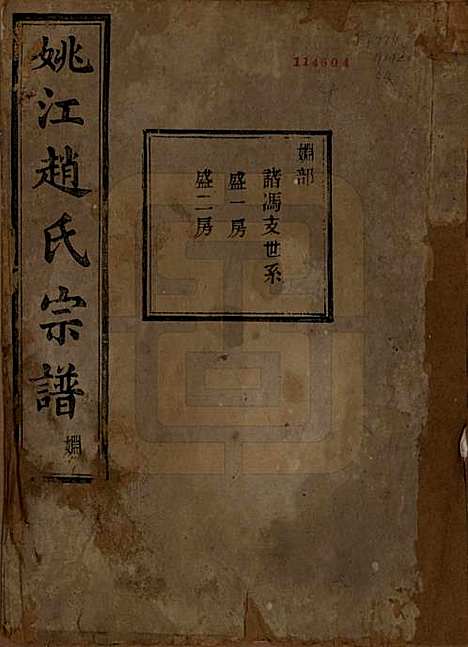 姚江趙氏宗譜
婣
婣部
諸馮支世系
盛一房
盛二房
114604